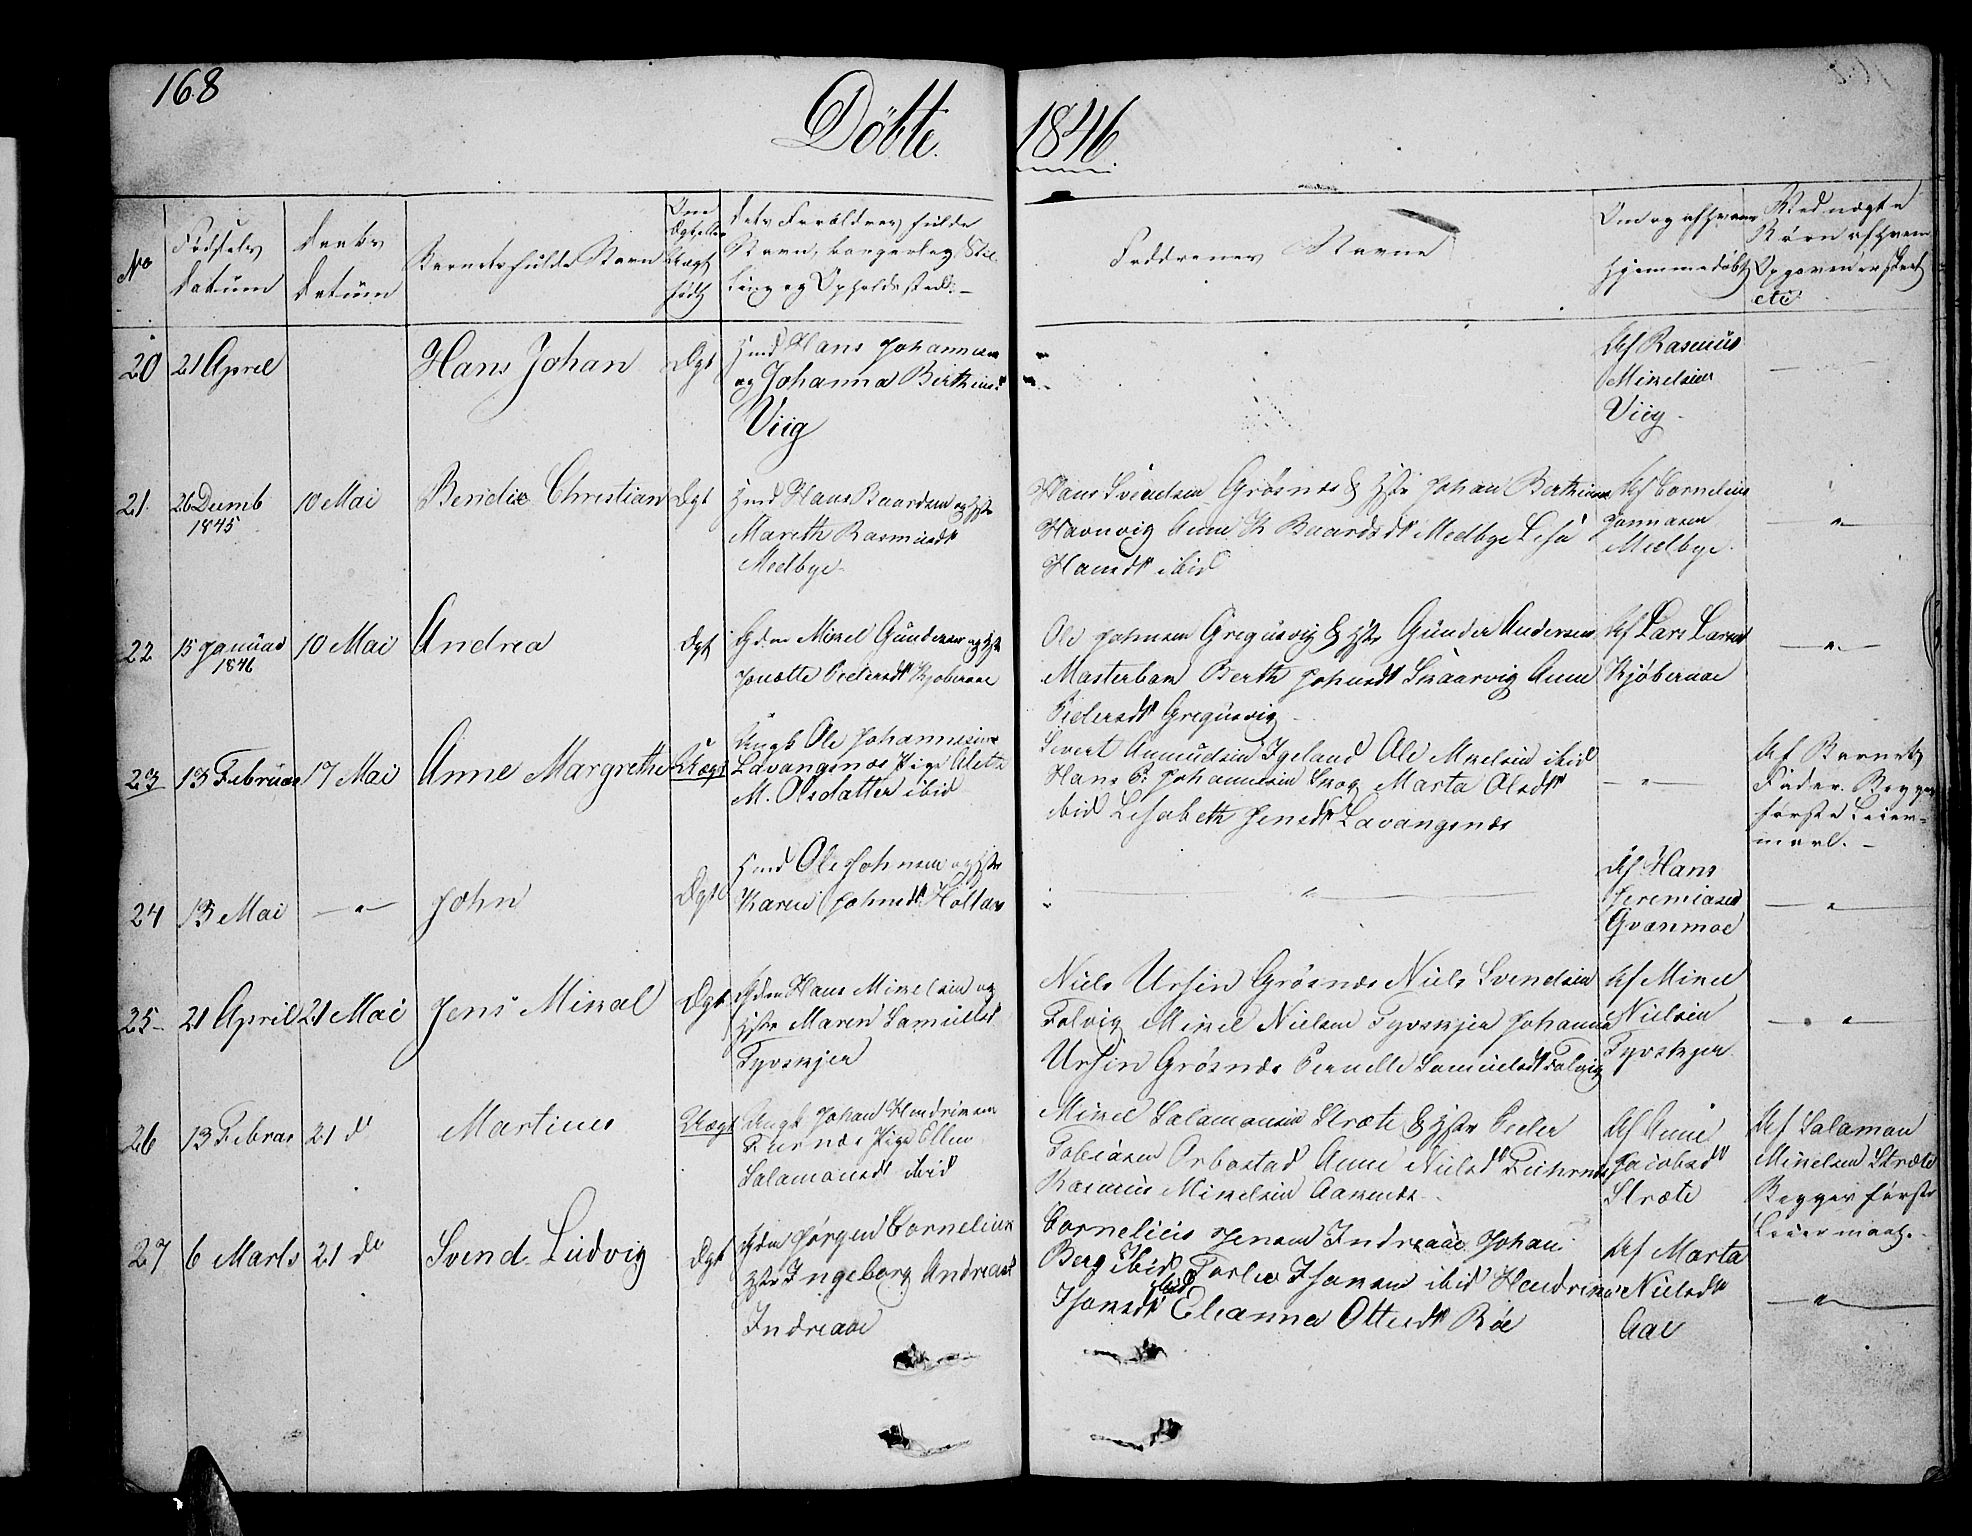 168
Döbte
1846
No
Fødsels
datum
Daabs
datum
Barnets fulde Navn
Om
Ægt eller
Uægt
født
dets Forældres fulde
Navn, borgerlig Stil
ling og Opholdssted.
Faddrenes Navne
Om og af hvem
hjemmedöbt
Uægte
Børn af hvem
Opgaven er skeet
etc
20
21 April
Hans Johan
Ægt
Hmd Hans Johannesen
og Johanna Berthine
Viig
Af Rasmus
Mikelsen
Viig
21.
26 Decmb
1845
10 Mai
Bendix Christian
Ægt
Hmd Hans Baardsen og Hstr
Mareth Rasmusdt
Medbye
Hans Svendsen Grøsnæs & Hstr Johan Berthinus
Havnvig Anne K Baardsdt Medbye Lisa
Hansdt ibid
Af Cornelius
Jonnasen
Medbye.
22
15 Januar
1846
10 Mai
Andrea
Ægt
Gdm Mikel Gunderson og Hstr
Jonette Pedersdt Kjøberaae
Ole Johnsen Gregusvig & Hstr Gunder Andersen
Masterbak Berth Johnsdt Skaarvig Anne
Pedersdt Gregusvig
Af Lars Larsen
Kjøberaae
23
13 Februar
17 Mai
Anne Margrethe
Uægt
Ungk Ole Johannesen
Lavangsnæs Pige Aleth
M. Olsdatter ibid
Sivert Asmundsen Igeland Ole Mikelsen ibid
Hans P. Johannesen Krog Marta Olsdt
ibid Lisabeth Jensdt Lavangsnæs
Af Barnets
Fader. Begges
første Leier-
maal.
24
13 Mai
John
Ægt
Hmd Ole Johnsen og Hstr
Karen Johnsdt Holtan
Af Hans
Jeremiasen
Qvanmoe
25
21 April
21 Mai
Jens Mikal
Ægt
Gdm Hans Mikelsen og
Hstr Maren Samuelsdt
Tyvskjer
Niels Ursin Grøsnæs Niels Svendsen
Folvig Mikel Nielsen Tyvskjer Johanna
Ursin Grøsnæs Pernelle Samuelsdt Folvig
Af Mikel
Nielsen
Tyvskjer
26
13 Februar
21 do
Martinus
Uægt
Ungk Johan Hendriksen
Feirnæs Pige Ellen
Salamonsdt ibid
Mikel Salamonsen Stræte & Hstr Peder
Tobiasen Orbostad Anne Nielsdt
Rasmus Mikelsen Aaknæs
Af Anne
Jacobsdt
Stræte
Af Salamon
Mikelsen Stræte
Begges første
Leiermaal.
27
6 Marts
21 do
Svend Ludvig
Ægt
Gdm Jørgen Cornelius
Hstr Ingeborg Andreasdt
Indreaae
Cornelius Jensen Indreaae Johan
Berg ibid Torber Isaksen ibid Hendrikka
Isaksdt ibid Elianna Ottesdt Røe
Af Marta
Nielsdt
Aae